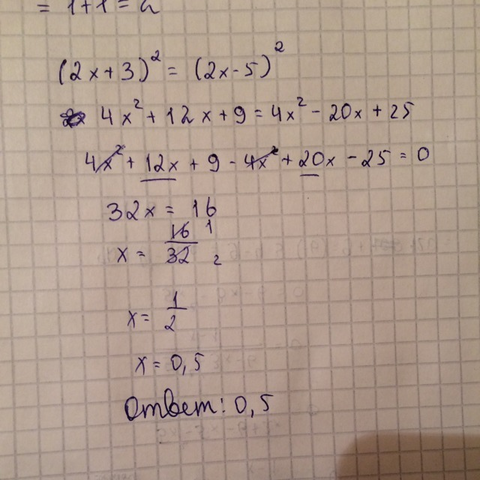 = 1+1 = 2
(2x+3)² = (2x-5)²
4x² + 12x + 9 = 4x² - 20x + 25
4x² + 12x + 9 - 4x² + 20x - 25 = 0
32x = 16
x = 16/32 1 2
x = 1/2
x = 0,5
Ответ: 0,5